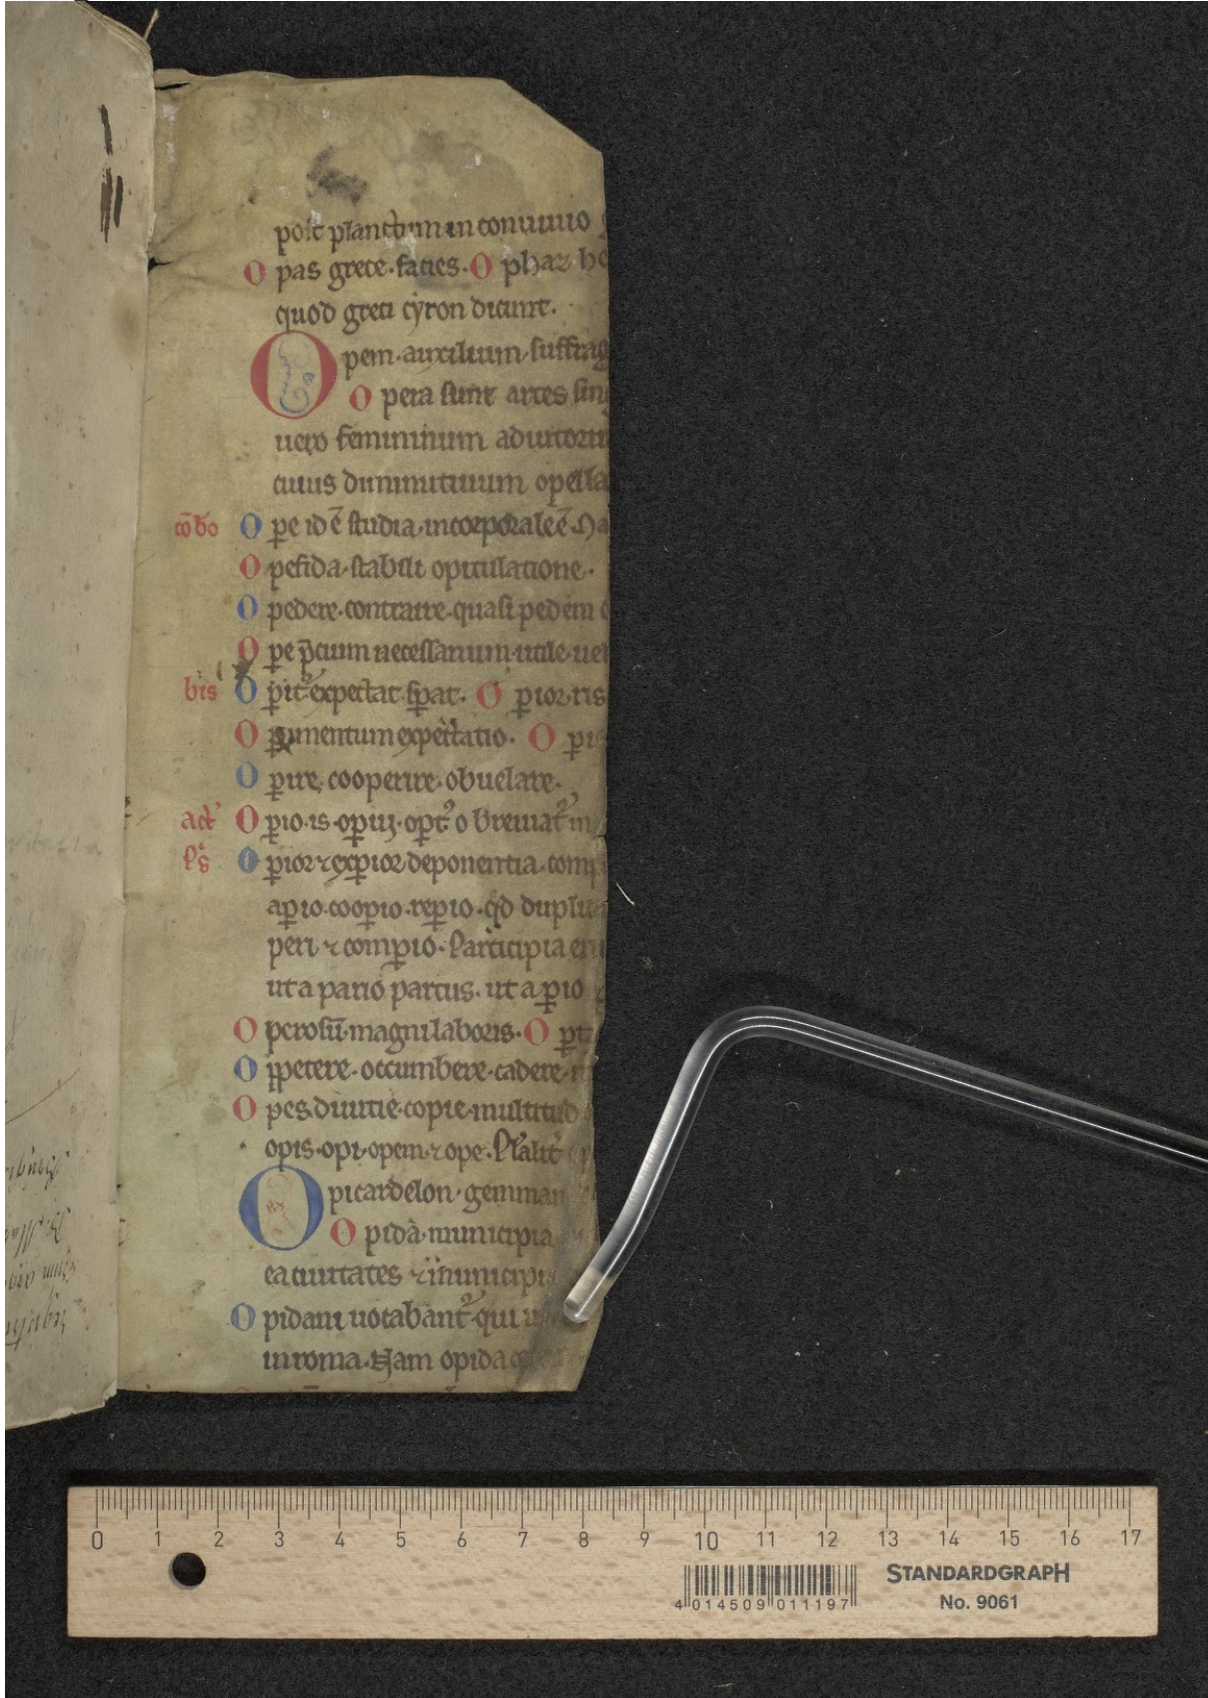 post planctum in conuiuio
O pas grece. facies. O phaz he
quod greci cyron dicunt.
O pem. auxilium. suffrag
O pera sunt artes sing
uero femininum adiutorium
cuius diminutiuum opella
O pe id ē studia. incorporale ē.
O pefida. stabilit opitulatione.
O pedere. contraire. quasi pedem
O pe p̄cium necessarium. utile. uel
bis O ꝑit᷒ expectat. sꝑat. O ꝑior. ris
O ꝑimentum expectatio. O ꝑi
O ꝑire. cooperire. obuelare.
O ꝑio. is. oꝑui. oꝑt᷒ o breuiat᷒ in
O ꝑior ⁊ exꝑior deponentia. comp
aꝑio. cooꝑio. reꝑio. qd duplic
peri ⁊ comꝑio. Participia
ut a pario partus. ut a ꝑio
O perosū. magni laboris. O ꝑt
O ppetere. occumbere. cadere.
O pes. diuitie. copie. multitud
opis. opi. opem. ⁊ ope. Pl̄alit᷒
O picardelon. gemman
O pida. municipia
ea ciuitates ⁊ municipi
O pidani uocabant᷒. qui
in roma. Nam opida
0 1 2 3 4 5 6 7 8 9 10 11 12 13 14 15 16 17
STANDARDGRAPH
No. 9061
4 014509 011197